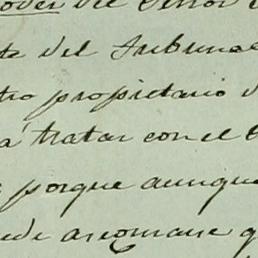 oder del Señor
te del Tribunal
tro propietario d
a tratar con el
porque aunque
ede